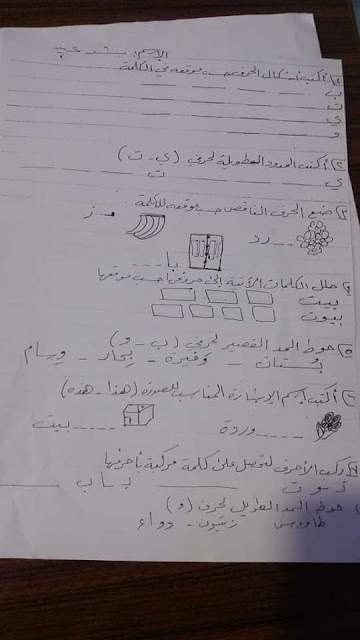 الاسم: بشر عيد
١) أكتب أشكال الحرف حسب موقعه في الكلمة
ب
ت
ي
و
٢) أكتب المدود الطويلة لحرفي (ي - ت)
ي ت
٣) ضع الحرف الناقص حسب موقعه للكلمة
... رد با... مـ..ز
٤) حلل الكلمات الآتية إلى حروفها حسب موقعها
بيت
بيوت
٥) حوط المد القصير لحرفي (ب - و)
بستان - وفيرة - بحار - وسام
٦) أكتب اسم الإشارة المناسب للصورة (هذا - هذه)
.... وردة .... بيت
٧) ركب الأحرف لتحصل على كلمة مركبة بأحرفها
ت و ت ب ا ب
حوط المد الطويل لحرف (و)
طاووس زيتون - دواء